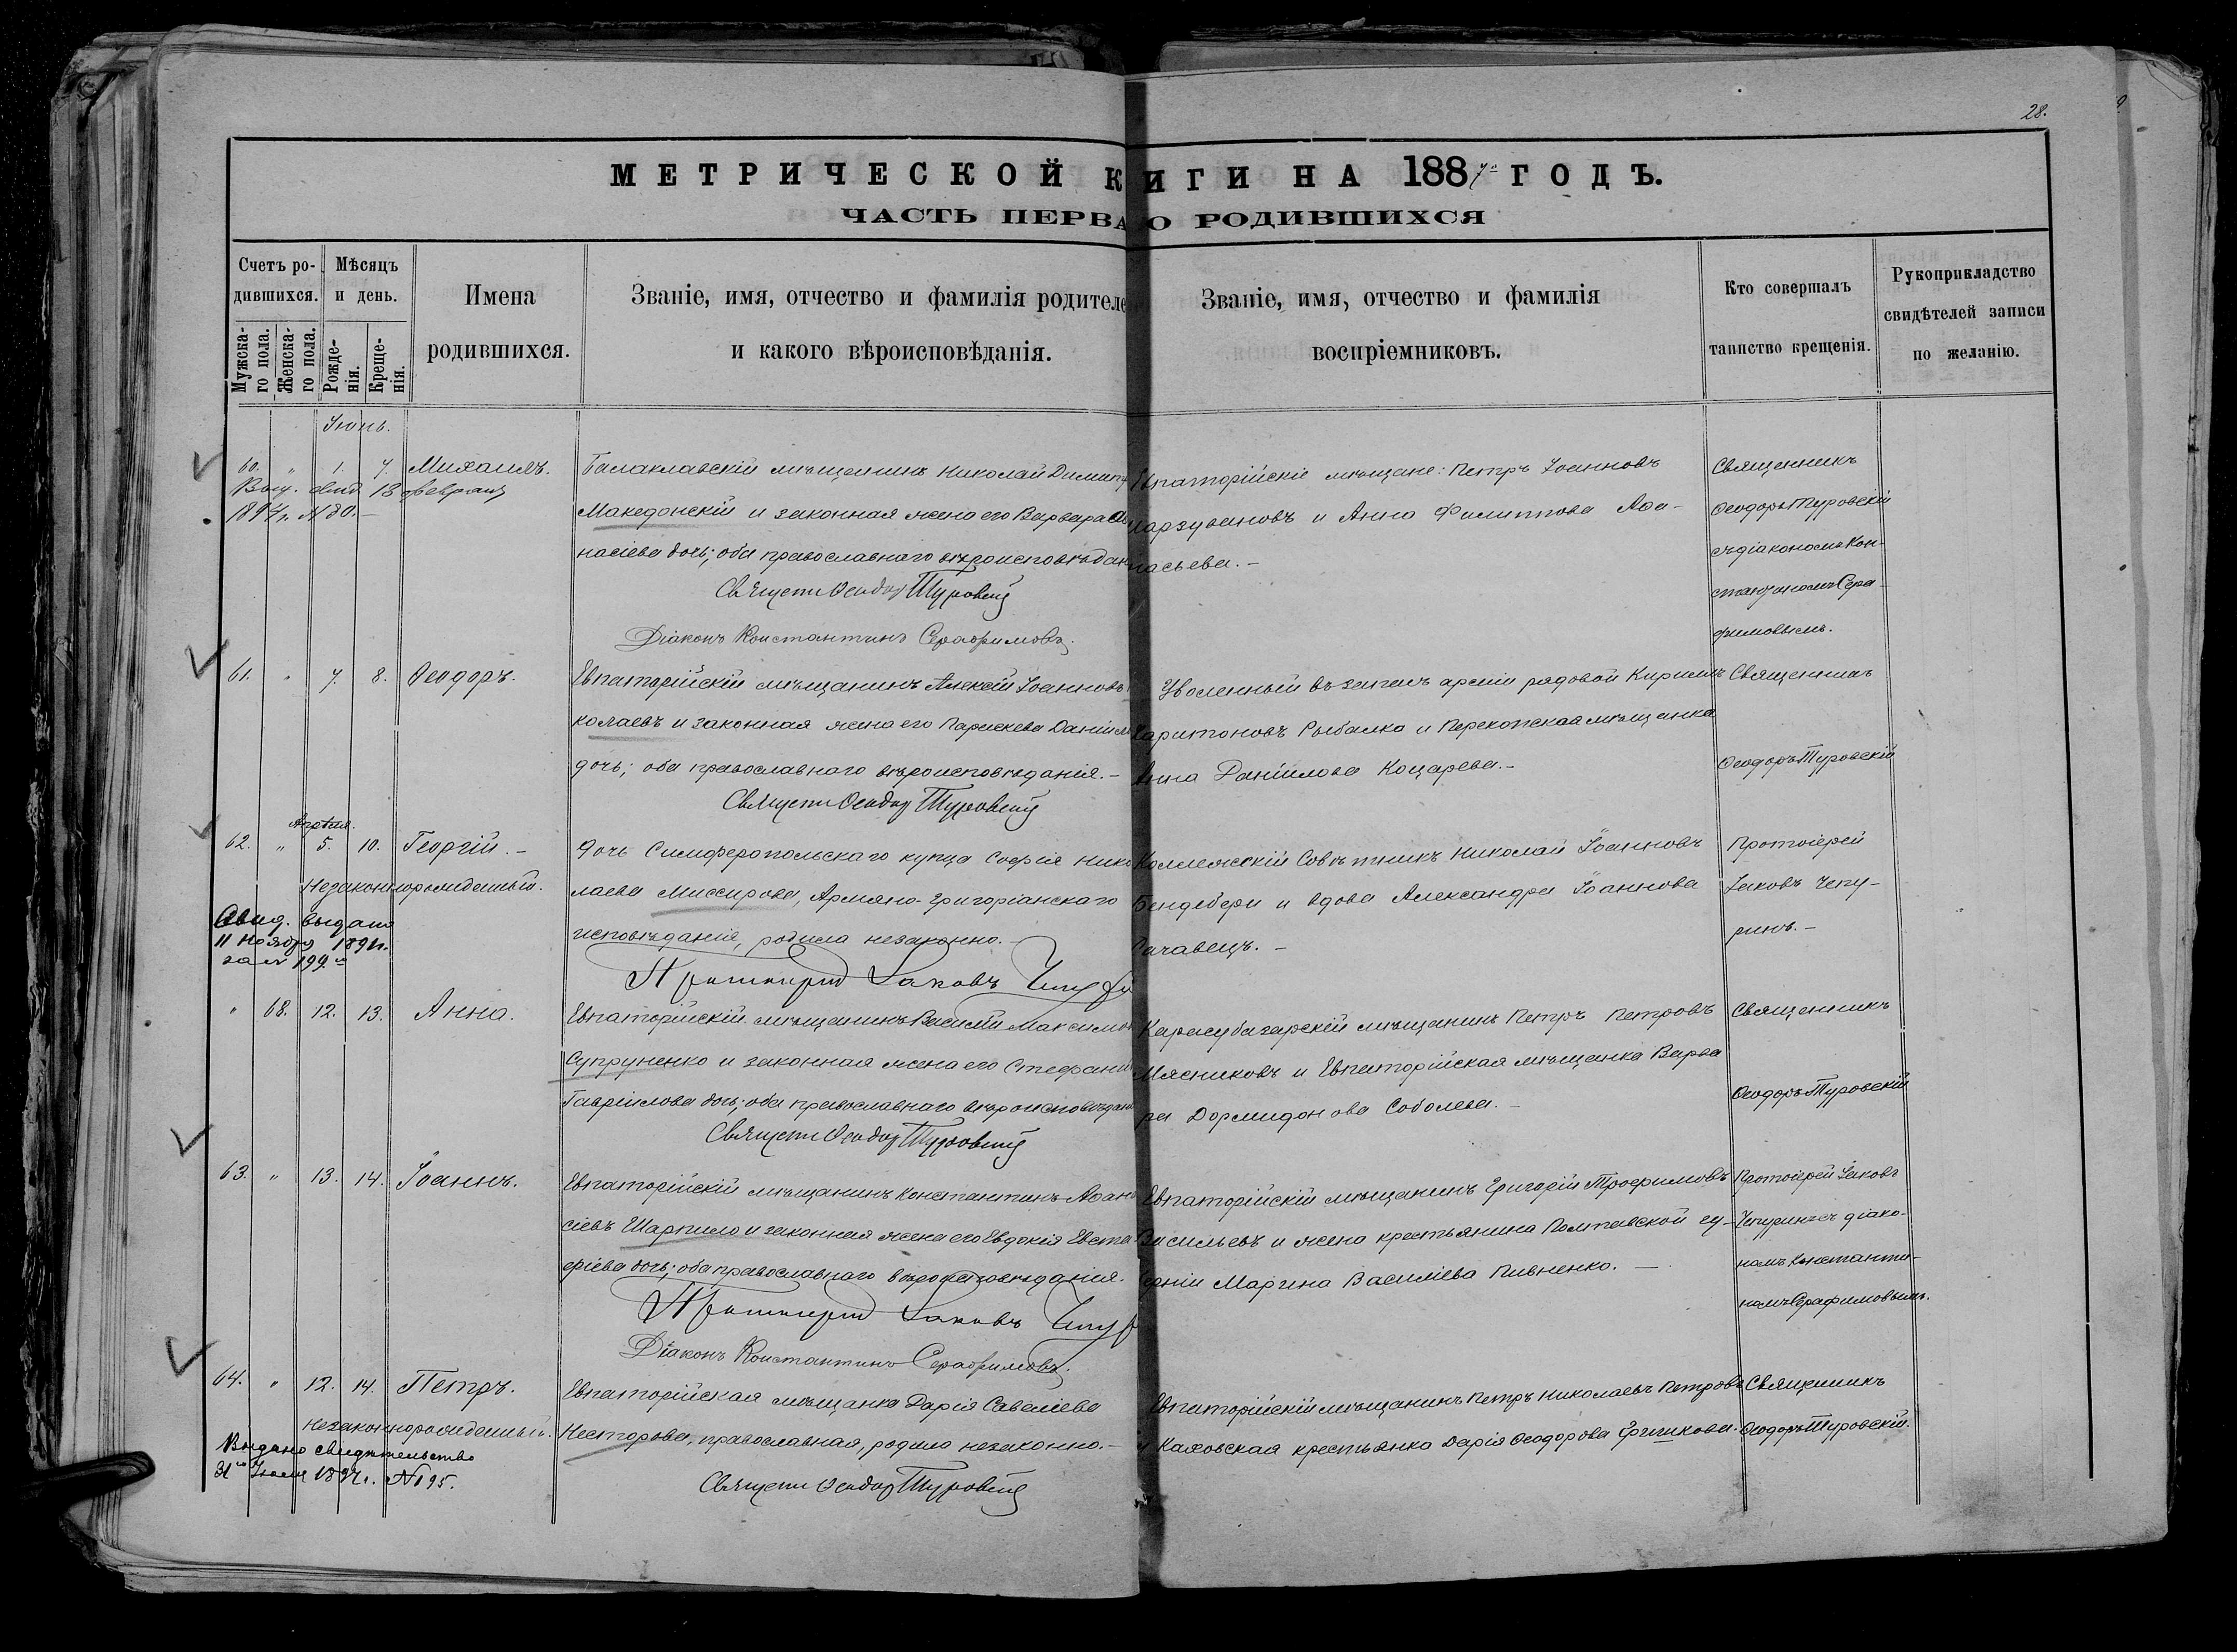 28.
МЕТРИЧЕСКОЙ К
ИГИ НА 1887 ГОДЪ.
ЧАСТЬ ПЕРВА
О РОДИВШИХСЯ
Счетъ ро-
дившихся.
Мужска-
го пола.
Женска-
го пола.
Мѣсяцъ
и день.
Рожде-
нія.
Креще-
нія.
Имена
родившихся.
Званіе, имя, отчество и фамилія родителе
и какого вѣроисповѣданія.
Званіе, имя, отчество и фамилія
воспріемниковъ.
Кто совершалъ
таинство крещенія.
Рукоприкладство
свидѣтелей записи
по желанію.
Іюнь.
60. " 1. 7. Михаилъ.
Выд. свид. 13 февраля
189 г. № 80.
Балаклавскій мѣщанинъ Николай Димит
Македонскій и законная жена его Варвара
насіева дочь; оба православнаго вѣроисповѣдан
Священ Ѳеодор Туровскій
Діаконъ Константинъ Серафимовъ.
Евпаторійскіе мѣщане: Петръ Іоанновъ
и Анна Филиппова Аѳа-
насьева. -
Священникъ
Ѳеодоръ Туровскій
съ діакономъ Кон-
стантиномъ Сера-
фимовымъ.
61. " 7. 8. Ѳеодоръ.
Евпаторійскій мѣщанинъ Алексѣй Іоанновъ
колаевъ и законная жена его Параскева Даніил
дочь; оба православнаго вѣроисповѣданія. -
Священ Ѳеодор Туровскій
Уволенный въ запасъ арміи рядовой Кирилъ
Харитоновъ Рыбалка и Перекопская мѣщанка
Анна Даніилова Коцарева. -
Священникъ
Ѳеодоръ Туровскій
Апрѣля.
62. " 5. 10. Георгій. -
Незаконнорожденный.
Свид. выдано
11 ноября 189 г.
за № 199
Дочь Симферопольскаго купца Софія Нико
лаева Миссирова, Армяно-Григоріанскаго
исповѣданія, родила незаконно. -
Протоіерей Іаковъ Чепур
Коллежскій Совѣтникъ Николай Іоанновъ
Бендебери и вдова Александра Іоаннова
Сачавецъ. -
Протоіерей
Іаковъ Чепу-
ринъ. -
" 68. 12. 13. Анна.
Евпаторійскій мѣщанинъ Василій Максимо
Супруненко и законная жена его Стефани
Гавріилова дочь; оба православнаго вѣроисповѣдан
Священ Ѳеодор Туровскій
Карасубазарскій мѣщанинъ Петръ Петровъ
Мясниковъ и Евпаторійская мѣщанка Варва
ра Дормидонова Соболева. -
Священникъ
Ѳеодоръ Туровскій
63. " 13. 14. Іоаннъ.
Евпаторійскій мѣщанинъ Константинъ Аѳана
сіевъ Шарпило и законная жена его Евдокія Евста
фіева дочь; оба православнаго вѣроисповѣданія.
Протоіерей Іаковъ Чепур
Діаконъ Константинъ Серафимовъ.
Евпаторійскій мѣщанинъ Григорій Трофимовъ
Васильевъ и жена крестьянина Полтавской гу-
берніи Марина Василіева Пивненко. -
Протоіерей Іаковъ
Чепуринъ съ діако-
номъ Константи-
номъ Серафимовымъ.
64. " 12. 14. Петръ.
незаконнорожденный.
Выдано свидѣтельство
31го Іюля 189 г. № 195.
Евпаторійская мѣщанка Дарія Савеліева
Несторова, православная, родила незаконно. -
Священ Ѳеодор Туровскій
Евпаторійскій мѣщанинъ Петръ Николаевъ Петровъ
и Каховская крестьянка Дарія Ѳеодорова
Священникъ
Ѳеодоръ Туровскій.